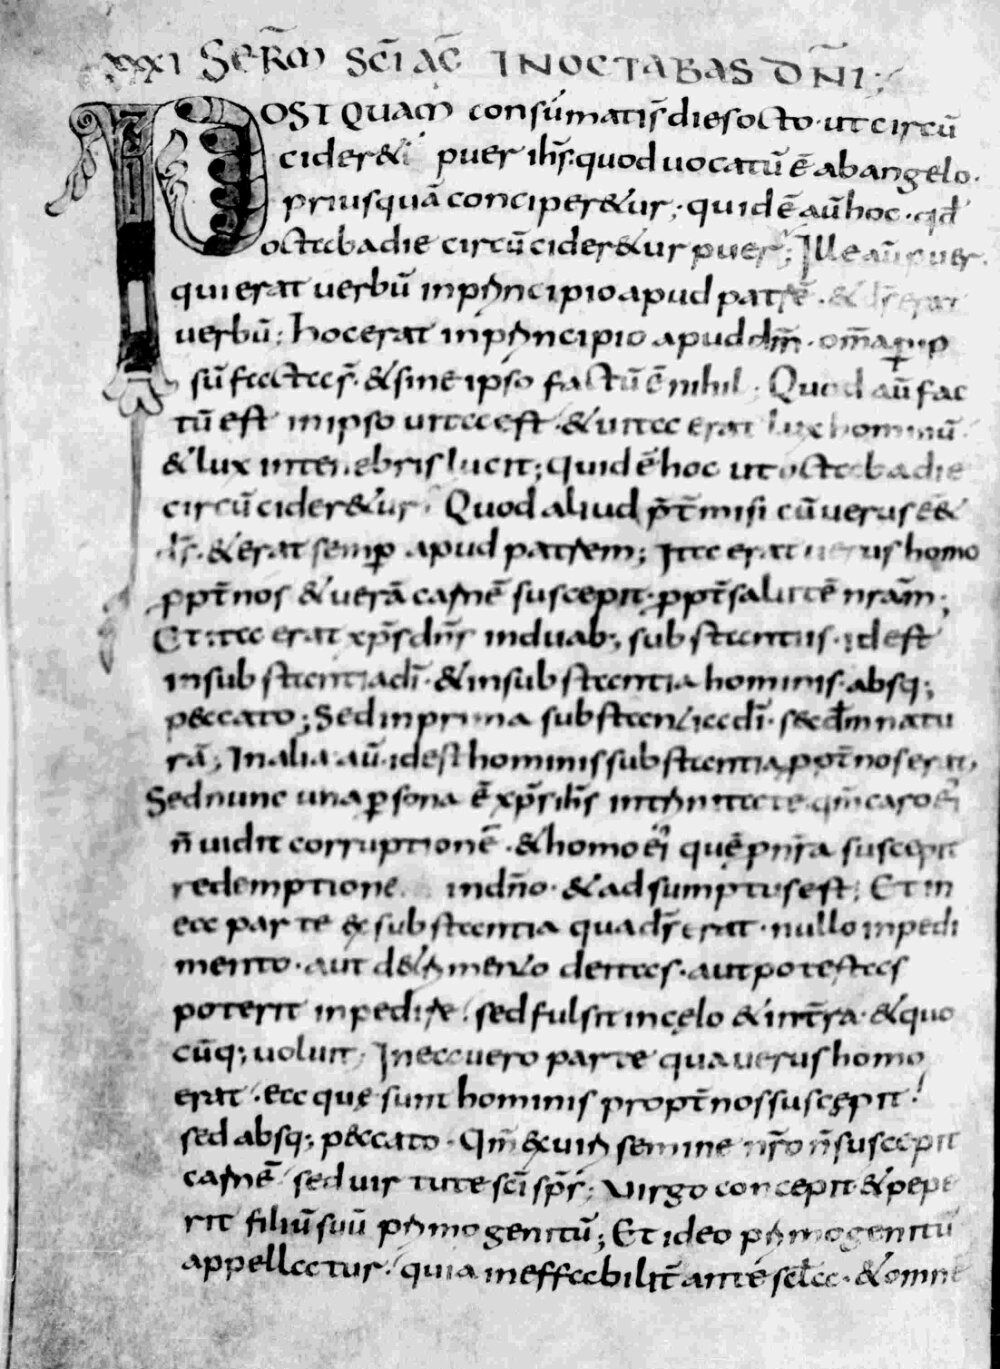 XXXI SERM̄ SCĪ AC̄ IN OCTABAS DN̄I;
POSTQUAM consūmatis̄ dies octo · ut circū
cider& puer ih̄s. quod uocatū ē ab angelo.
priusquā conciper&ur; · quid ē aū hoc · qd̄
octaba die circūcider&ur puer; Ille aū puer.
qui erat uerbū in principio apud patrē · & dr̄ erat
uerbū; hoc erat in principio apud dm̄ · om̄a p ip
sū facta s̄. & sine ipso factū ē nihil · Quod aū fac
tū est in ipso uita est · & uita erat lux hominū.
& lux in tenebris lucit; quid ē hoc ut octaba die
circūcider&ur · Quod aliud p̄t̄ misi cū uerus ē&
ds̄. & erat semp apud patrem; Ita erat uerus homo
ppt̄ nos & uerā carnē suscepit · ppt̄ salutē nrām;
Et ita erat xp̄s dn̄s in duab; substantiis · idest
in substantia dī · & in substantia hominis · absq;
peccato; Sed in prima substantia dī · secdm̄ natu
rā; In alia aū · idest hominis substantia ppt̄ nos erat,
Sed nunc una psona ē xp̄s ih̄s in trinitate · qm̄ caro ei
n̄ uidit corruptionē · & homo ei quē p nr̄a suscepit
redemptione in dn̄o · & adsumptus est; Et in
ea parte ex substantia qua ds̄ erat · nullo inpedi
mento · aut detrimento deitas · aut potestas
poterit inpedire. sed fulsit in cęlo & in tr̄ra · & quo
cūq; uoluit · In ea uero parte qua uerus homo
erat · ea quę sunt hominis propt̄ nos suscępit!
sed absq; peccato · Qm̄ ex uiri semine nr̄o n̄ suscepit
carnē sed uirtute scī sp̄s; Virgo concepit · & pepe
rit filiū suū primogenitū; Et ideo primogenitū
appellatur. quia ineffabilit̄ ante sc̄la · & omne